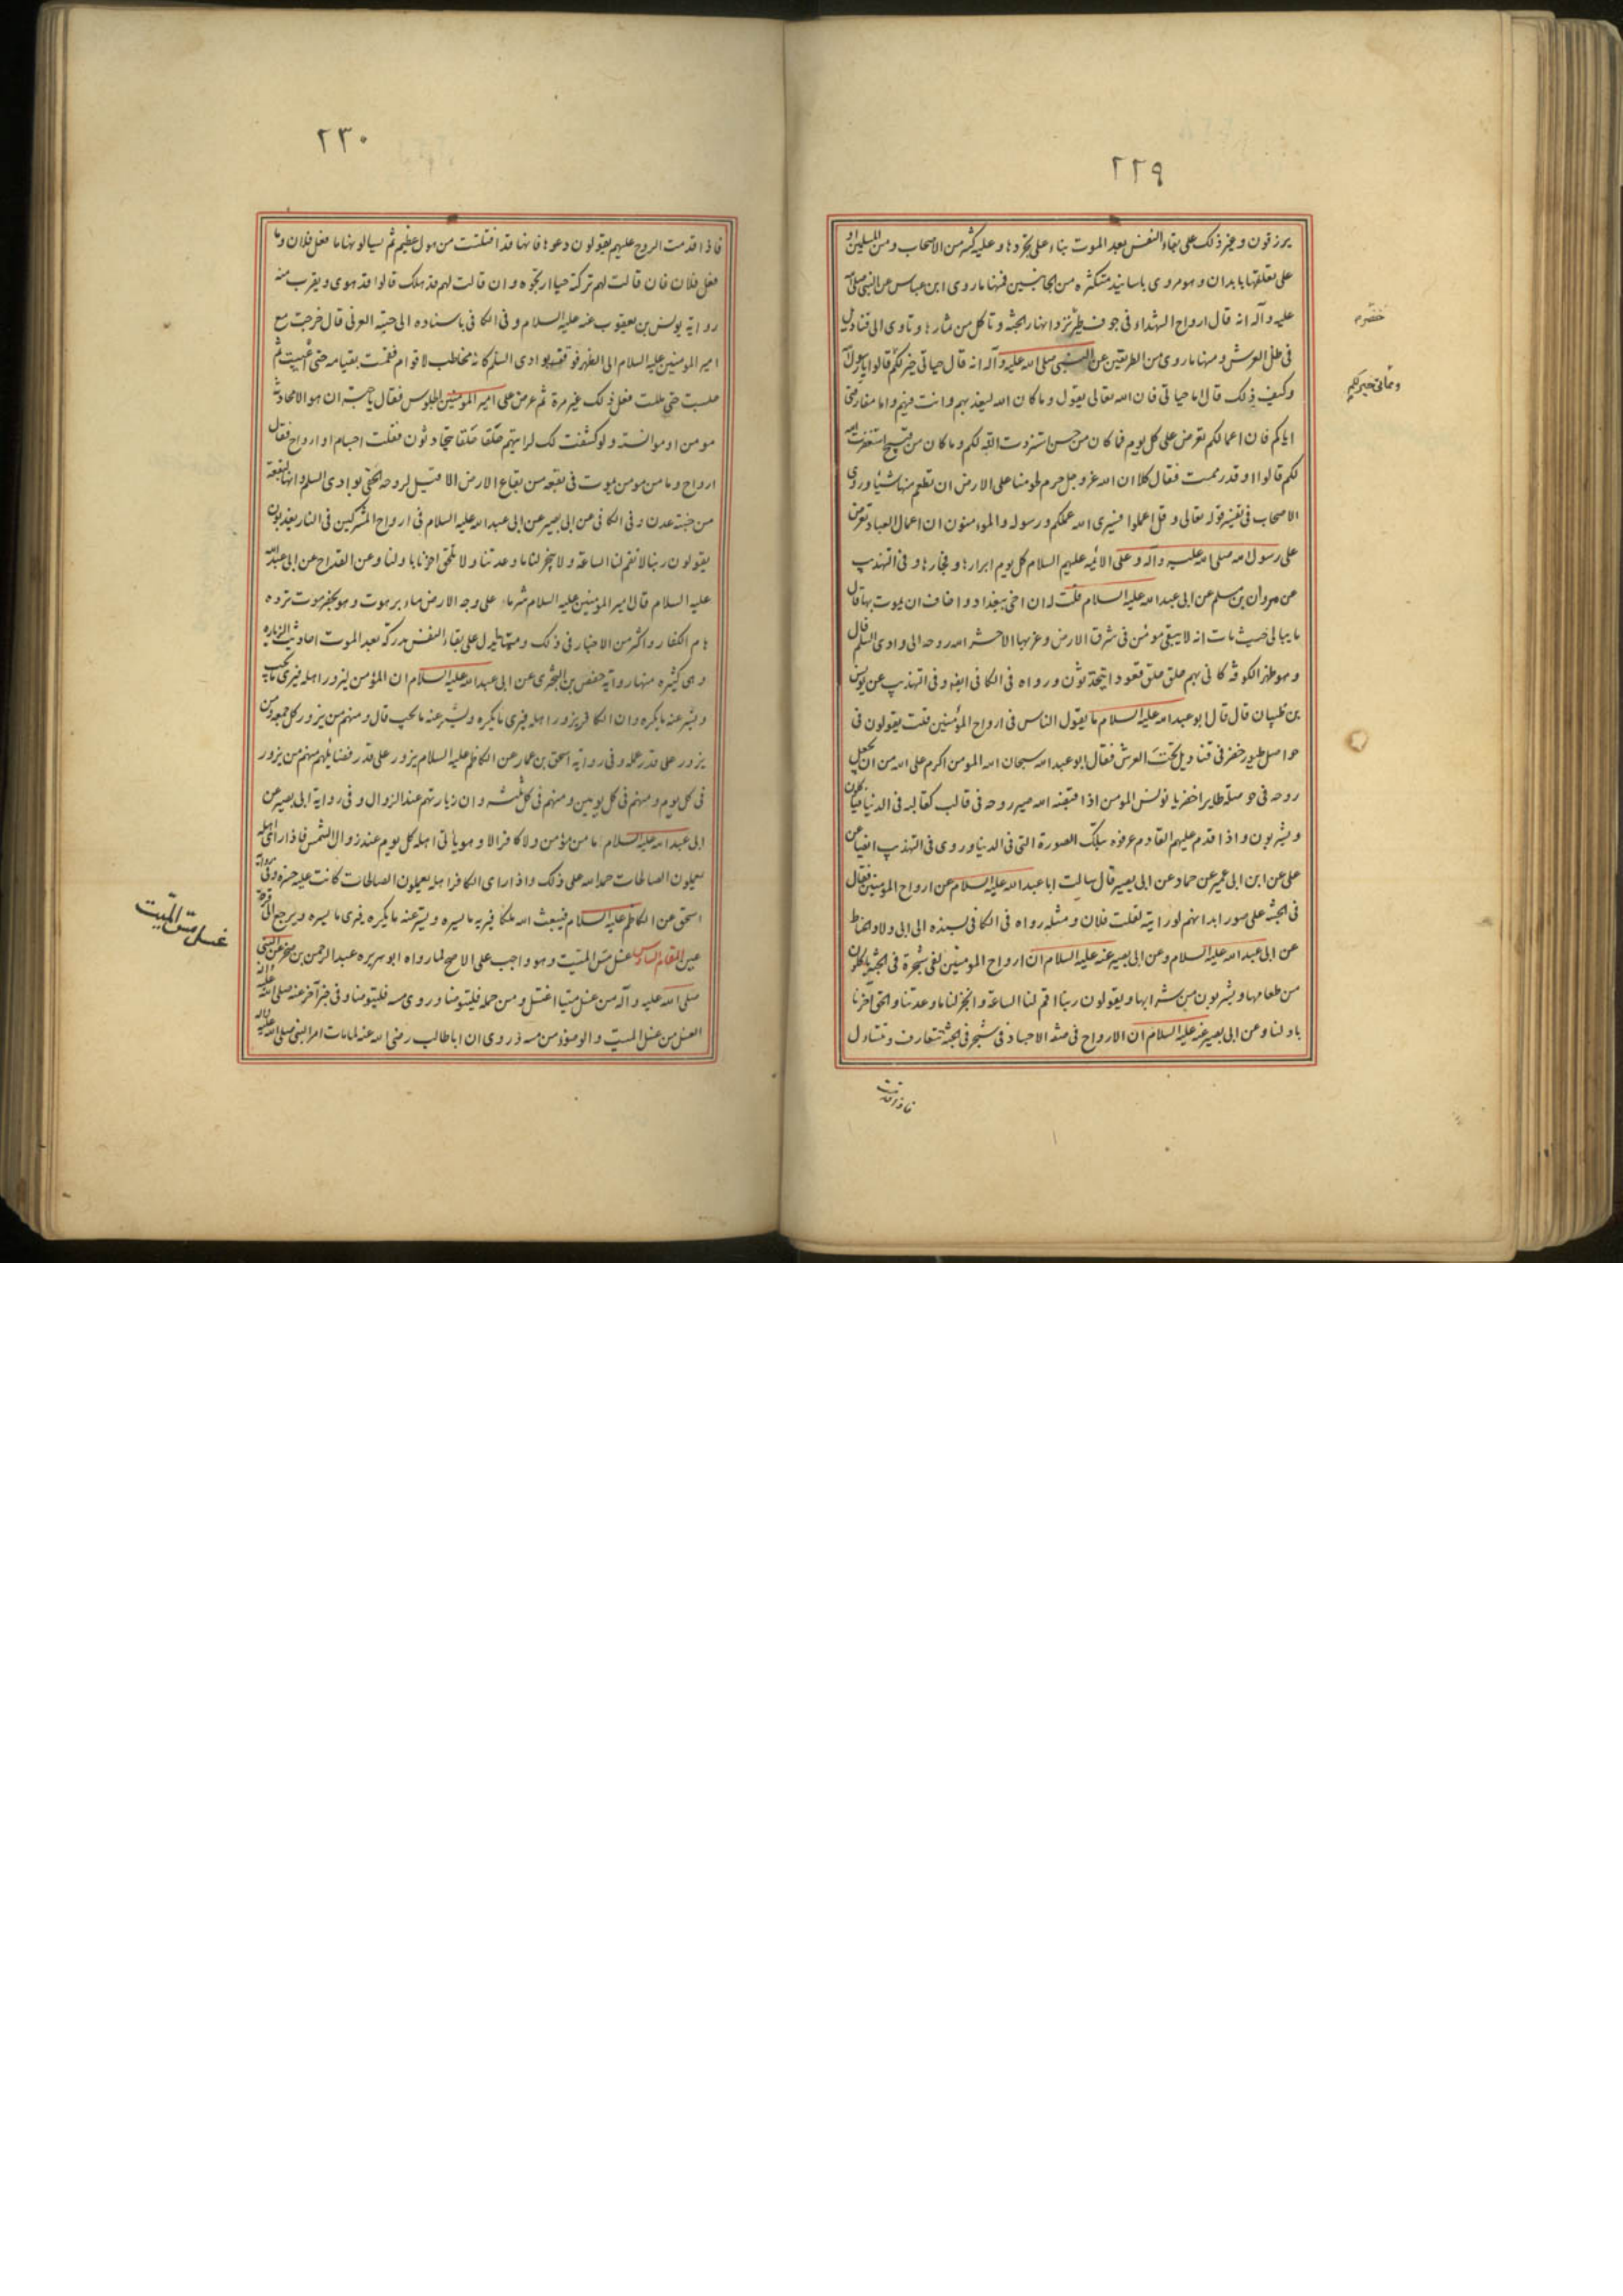 ٢٢٩
يرزقون وغير ذلك على بقاء النفس بعد الموت بناء على تجردها وعليه كثير من الاصحاب ومن المسلمين او
على تعلقها بابدان وهو مروى باسانيد متكثره من الجانبين فمنها ما روى ابن عباس عن النبى صلى الله
عليه وآله انه قال ارواح الشهداء فى جوف طير تزد انهار الجنة وتاكل من ثمارها وتاوى الى قناديل
خضر
فى ظل العرش ومنها ما روى من الطريقين عن النبى صلى الله عليه وآله انه قال حياتى خير لكم قالوا يا رسول الله
ومماتى خير لكم
وكيف ذلك قال اما حياتى فان الله تعالى يقول وما كان الله ليعذبهم وانت فيهم واما مفارقتى
اياكم فان اعمالكم تعرض على كل يوم فما كان من حسن استزدت الله لكم وما كان من قبيح استغفرت الله
لكم قالوا او قد رممت فقال كلا ان الله عز وجل حرم لحومنا على الارض ان تطعم منها شيئا وروى
الاصحاب فى تفسير قوله تعالى وقل اعملوا فسيرى الله عملكم ورسوله والمؤمنون ان اعمال العباد تعرض
على رسول الله صلى الله عليه وآله وعلى الائمه عليهم السلام كل يوم ابرارها وفجارها وفى التهذيب
عن مروان بن مسلم عن ابى عبدالله عليه السلام قلت له ان اخى ببغداد واخاف ان يموت بها قال
ما يبالى حيث مات انه لا يبقى مؤمن فى شرق الارض وغربها الا حشر الله روحه الى وادى السلم قال
وهو ظهر الكوفه كانى بهم حلق حلق قعود ايتحدثون ورواه فى الكافى ايضا وفى التهذيب عن يونس
بن ظبيان قال قال ابو عبدالله عليه السلام ما يقول الناس فى ارواح المؤمنين قلت يقولون فى
حواصل طيور خضر فى قناديل تحت العرش فقال ابو عبدالله سبحان الله المومن اكرم على الله من ان يجعل
روحه فى حوصلة طاير اخضر يا يونس المومن اذا قبضه الله صير روحه فى قالب كقالبه فى الدنيا فياكلون
ويشربون واذا قدم عليهم القادم عرفوه بتلك الصورة التى فى الدنيا وروى فى التهذيب ايضا عن
على عن ابن ابى عمير عن حماد عن ابى بصير قال سالت ابا عبدالله عليه السلام عن ارواح المومنين فقال
فى الجنة على صور ابدانهم لو رايته لقلت فلان ومثله رواه فى الكافى بسنده الى ابى ولاد الحناط
عن ابى عبدالله عليه السلام وعن ابى بصير عنه عليه السلام ان ارواح المومنين لفى شجرة فى الجنة ياكلون
من طعامها ويشربون من شرابها ويقولون ربنا اقم لنا الساعة وانجز لنا ما وعدتنا والحق اخرنا
باولنا وعن ابى بصير عنه عليه السلام ان الارواح فى صفة الاجساد فى شجر فى الجنة تتعارف وتتساءل
فاذا قدمت
٢٣٠
فاذا قدمت الروح عليهم يقولون دعوها فانها قد افلتت من هول عظيم ثم يسالونها ما فعل فلان وما
فعل فلان فان قالت لهم تركته حيا ارتجوه وان قالت لهم قد هلك قالوا قد هوى ويقرب منه
رواية يونس بن يعقوب عنه عليه السلام وفى الكافى باسناده الى حبة العرنى قال خرجت مع
امير المومنين عليه السلام الى الظهر فوقف بوادى السلم كانه مخاطب لاقوام فقمت بقيامه حتى اعييت ثم
جلست حتى مللت فعل ذلك غير مرة ثم عرض على امير المومنين الجلوس فقال يا حبة ان هو الا محادثة
مومن او موانسته ولو كشفت لك لرايتهم حلقا حلقا يتحادثون فقلت اجسام او ارواح فقال
ارواح وما من مومن يموت فى بقعه من بقاع الارض الا قيل لروحه الحقى بوادى السلم وانها لبقعة
من جنة عدن وفى الكافى عن ابى بصير عن ابى عبدالله عليه السلام فى ارواح المشركين فى النار يعذبون
يقولون ربنا لا تقم لنا الساعة ولا تنجز لنا ما وعدتنا ولا تلحق اخرنا باولنا وعن القداح عن ابى عبدالله
عليه السلام قال امير المؤمنين عليه السلام شر ماء على وجه الارض ماء برهوت وهو بحضرموت ترده
هام الكفار واكثر من الاخبار فى ذلك ومما يدل على بقاء النفس مدركة بعد الموت احاديث الزياره
وهى كثيره منها رواية حفص بن البخترى عن ابى عبدالله عليه السلام ان المؤمن ليزور اهله فيرى ما يحب
ويستر عنه ما يكره وان الكافر يزور اهله فيرى ما يكره ويستر عنه ما يحب قال ومنهم من يزور كل جمعه ومن
يزور على قدر عمله وفى رواية اسحق بن عمار عن الكاظم عليه السلام يزور على قدر فضايلهم منهم من يزور
فى كل يوم ومنهم فى كل يومين ومنهم فى كل ثلثه وان زيارتهم عند الزوال وفى رواية ابى بصير عن
ابى عبدالله عليه السلام ما من مؤمن ولا كافر الا وهو ياتى اهله كل يوم عند زوال الشمس فاذا راى اهله
يعملون الصالحات حمد الله على ذلك واذا راى الكافر اهله يعملون الصالحات كانت عليه حسره وفى رواية
اسحق عن الكاظم عليه السلام فيبعث الله ملكا فيريه ما يسره ويستر عنه ما يكره فيرى ما يسره ويرجع الى قرة
عين المقام السادس غسل مس الميت وهو واجب على الاصح لما رواه ابو هريره عبدالرحمن بن صخر عن النبى
غسل مس الميت
صلى الله عليه وآله من غسل ميتا اغتسل ومن حمله فليتوضا وروى مسه فليتوضا وفى خبر آخر عنه صلى الله عليه وآله
الغسل من غسل الميت والوضوء من مسه وروى ان ابا طالب رضى الله عنه لما مات امر النبى صلى الله عليه وآله